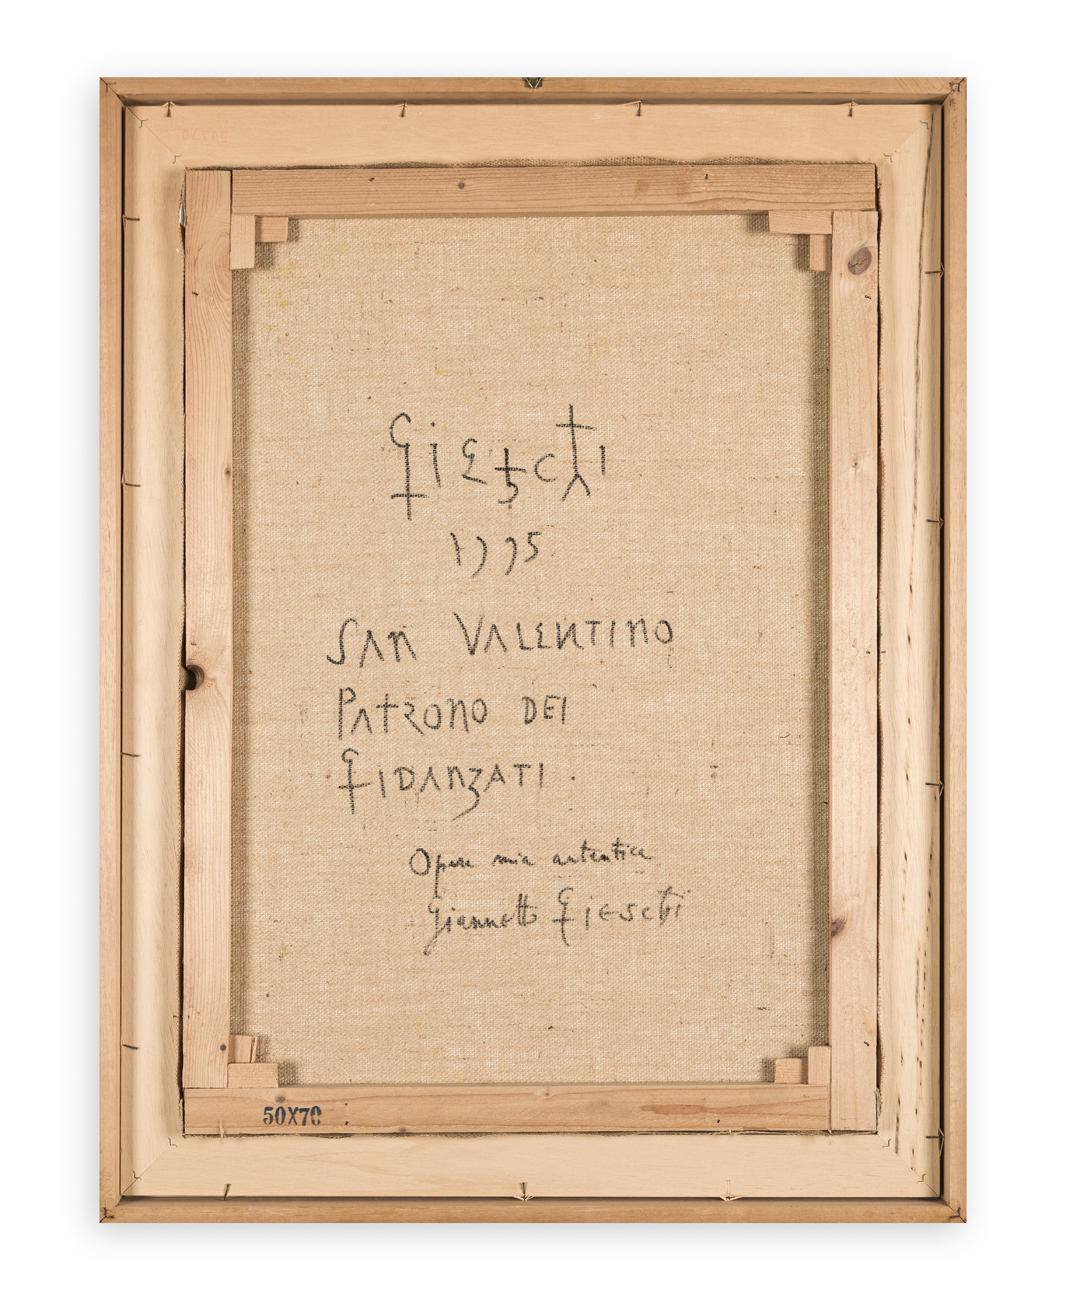 Fieschi
1995
SAN VALENTINO
PATRONO DEI
FIDANZATI.
Opera mia autentica
Giannetto Fieschi
50X70